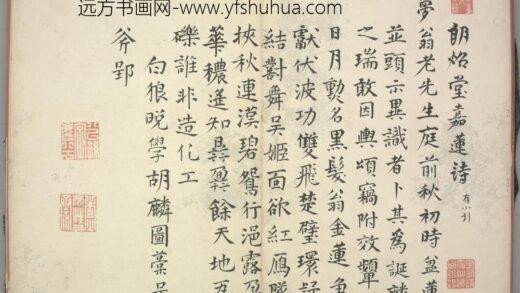 远方书画网-www.yfshuhua.com
朗炤堂嘉蓮詩 有小引
夢翁老先生庭前秋初時盆蓮
並頭示異識者卜其為誕麟
之瑞敢因輿頌竊附效顰
日月勳名黑髮翁金蓮
獻伏波功雙飛楚璧環
結對舞吳姬面欲紅鴈
挾秋連漠碧鴛行浥露
華穠遥知具異餘天地
礫誰非造化工
白狼晚學胡麟圖稾
斧郢